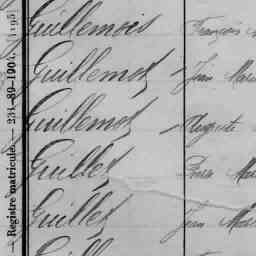 — Registre matricule. — 234-89-1904. [1195]
Guillemois François
Guillemot Jean Marie
Guillemot Auguste
Guillet Pierre Mar
Guillet Jean Mar